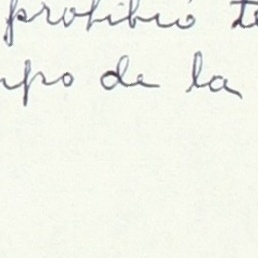 prohibió te
mpo de la